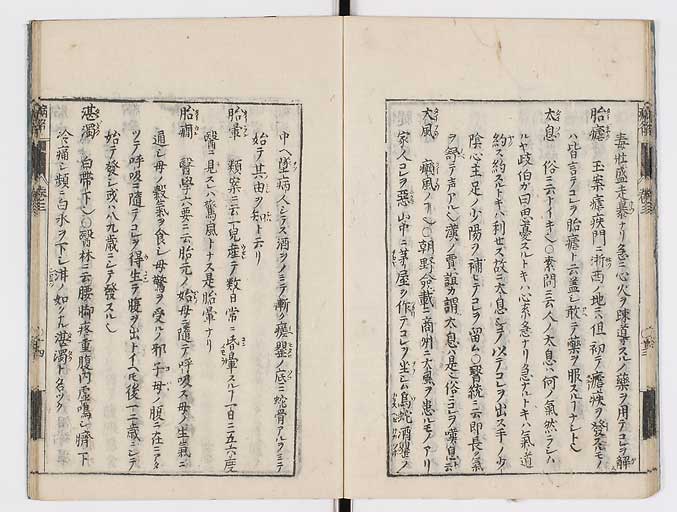 毒壮盛ニ〆暴ナリ急ニ心火ヲ疎導スルノ藥ヲ用テコレヲ解
胎瘧 玉案瘧疾門ニ浙西ノ地ニ但初テ瘧疾ヲ發スルモノ
ハ皆言テコレヲ胎瘧ト云蓋シ敢テ藥ヲ服スルコナシト
太息 俗ニ云トイキ○素問ニ云人ノ太息ハ何ノ氣然ラシム
ルヤ岐伯カ曰憂スルトキハ心系急ナリ急ナルトキハ氣道
約ス約スルトキハ利セス故ニ太息シテ以テコレヲ出ス手ノ少
陰心主足ノ少陽ヲ補テコレヲ留ム○醫統ニ云即長ク氣
ヲ舒テ声アル漢ノ賈誼カ謂太息ハ是也俗コレヲ嘆息ト云
大風 癩風ノ○朝野僉載ニ商州ニ大風ヲ患ルモノアリ
家人コレヲ惡ミ山中ニ茅屋ヲ作テコレヲ坐シム烏蛇酒罌ノ
中ヘ墜病人シラス酒ヲノミテ漸ク瘥罌ノ底ニ蛇骨アルヲミテ
始テ其由ヲ知ト云リ
胎暈 類案ニ云一兒産テ數日常ニ昏暈スル一日ニ五六度
醫ニ見スレハ驚風トナス是胎暈ナリ
胎癇 醫學六要ニ云胎元ノ始母ニ隨テ呼吸ス母ノ生氣ニ
通シ母ノ穀氣ヲ食シ母驚ヲ受ルノ邪子母ノ腹ニ在ニアタ
ツテ呼吸ニ隨テコレヲ得生テ腹ヲ出トイヘモ後一二歳ニシテ
始テ發シ或ハ八九歳ニシテ發スル
湛濁 白帶下○醫林ニ云腰脚疼重腹内虚鳴シ臍下
冷痛シ頻ニ白水ヲ下シ泔ノ如クナル湛濁ト名ツク